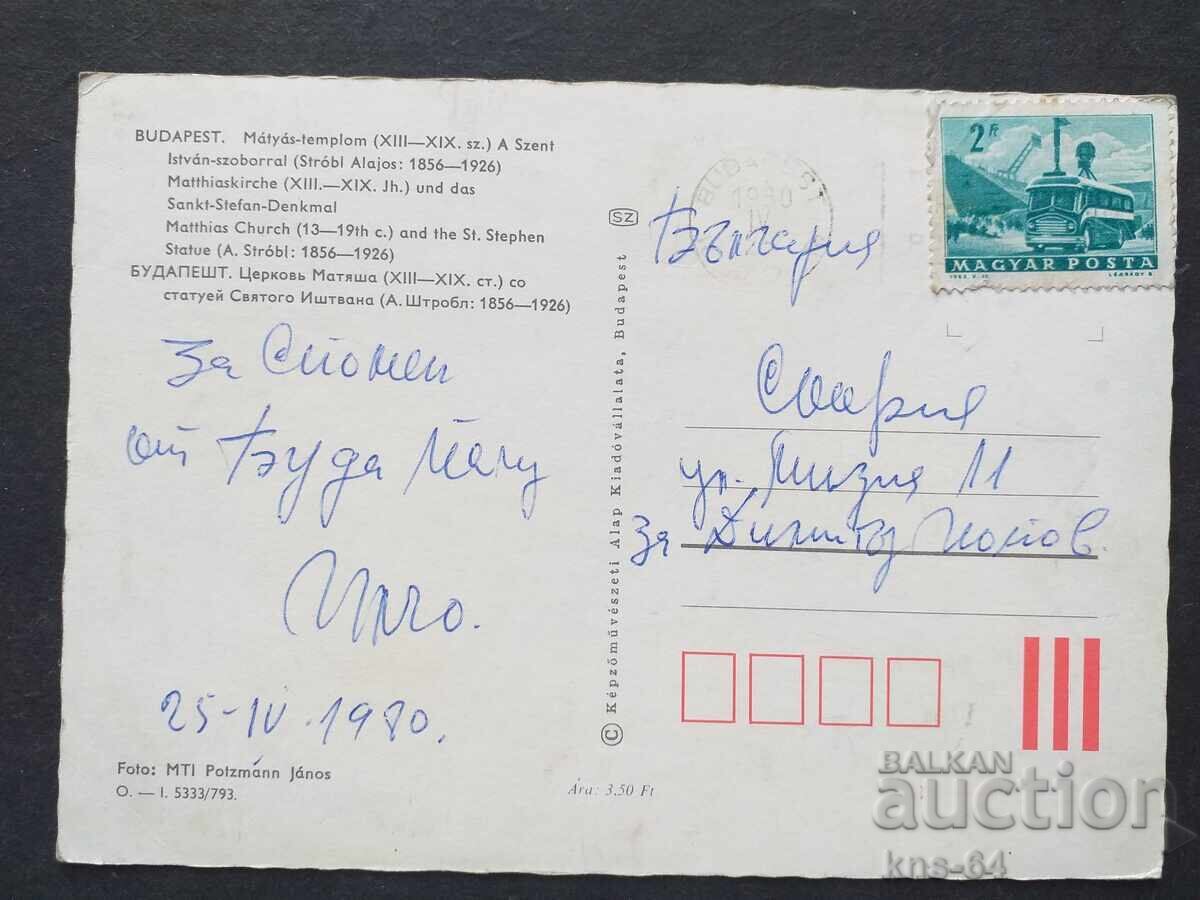 BUDAPEST. Mátyás-templom (XIII—XIX. sz.) A Szent
István-szoborral (Stróbl Alajos: 1856—1926)
Matthiaskirche (XIII.—XIX. Jh.) und das
Sankt-Stefan-Denkmal
Matthias Church (13—19th c.) and the St. Stephen
Statue (A. Stróbl: 1856—1926)
БУДАПЕШТ. Церковь Матяша (XIII—XIX. ст.) со
статуей Святого Иштвана (А. Штробл: 1856—1926)
За Спомен
от Буда Пещ
25-IV-1980.
Foto: MTI Potzmann János
O. — I. 5333/793.
SZ
© Képzőművészeti Alap Kiadóvállalata, Budapest
Ára: 3,50 Ft
BUDAPEST
1980
IV
2 Ft
MAGYAR POSTA
България
София
ул. Мизия 11
за Димитър Попов.
BALKAN
auction
kns-64